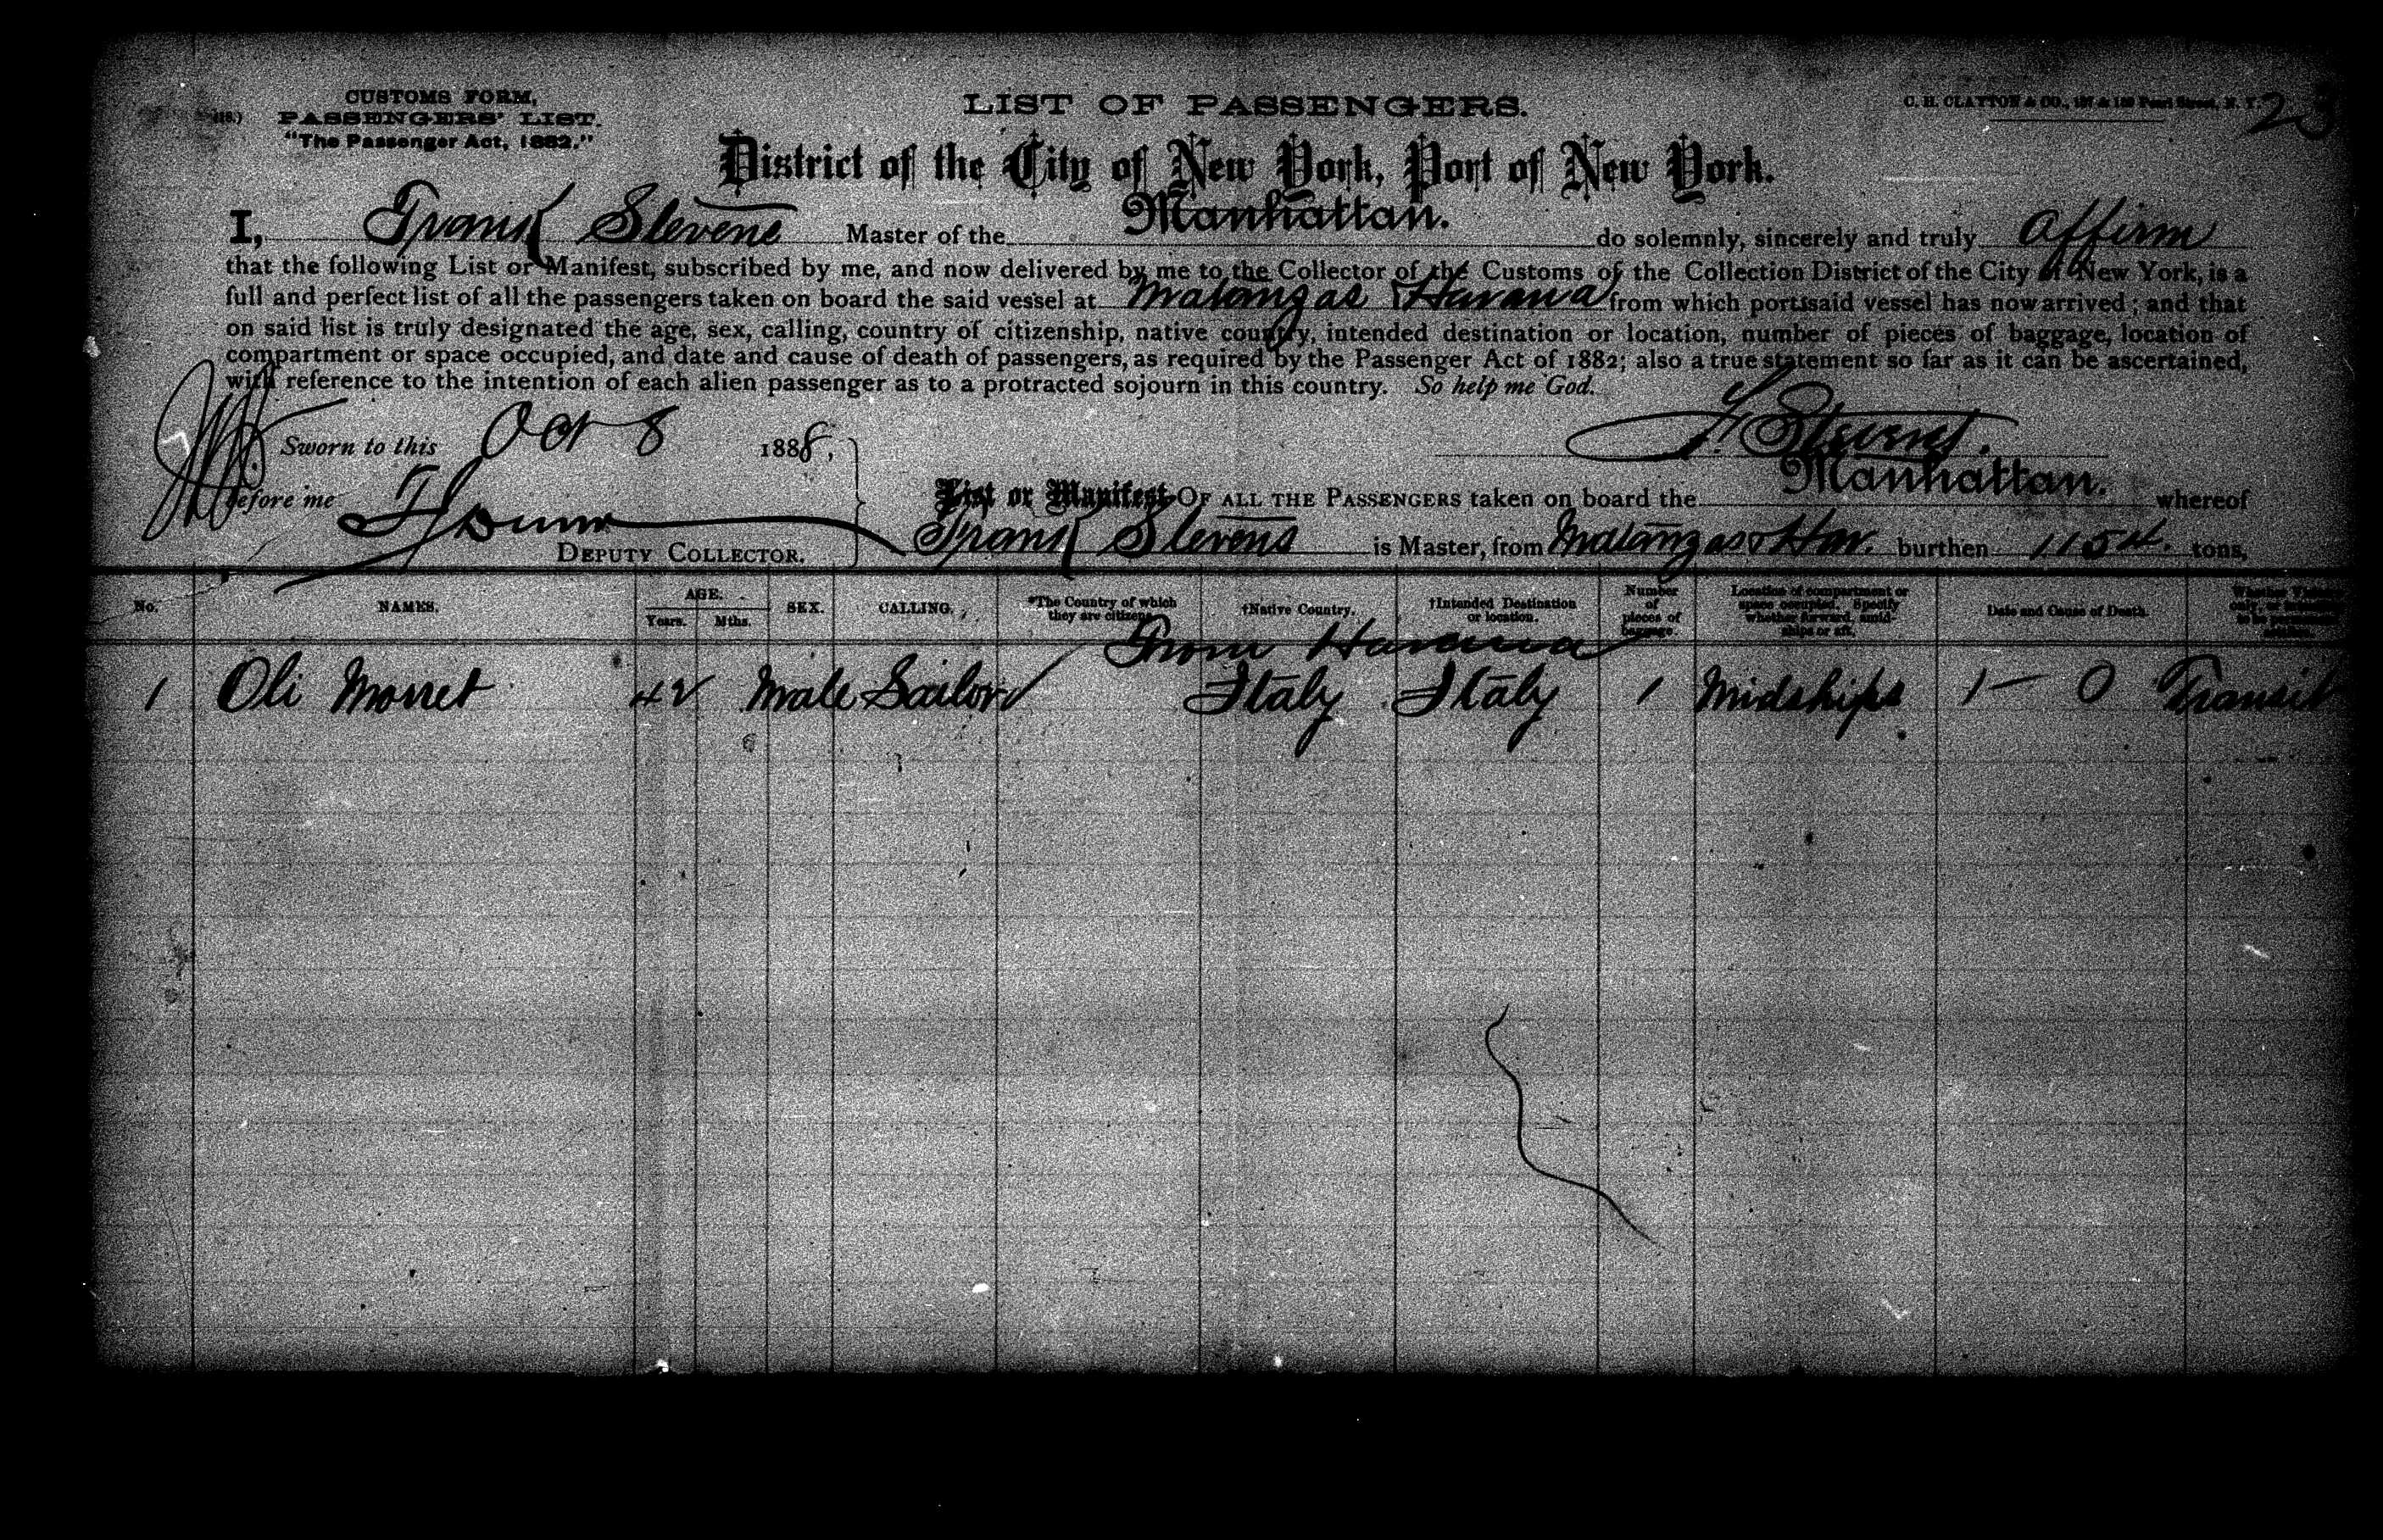 CUSTOMS FORM,
PASSENGERS' LIST.
"The Passenger Act, 1882."
LIST OF PASSENGERS.
C. H. CLAYTON & CO., Pearl Street, N. Y.
23
District of the City of New York, Port of New York.
I, Frank Stevens Master of the Manhattan. do solemnly, sincerely and truly affirm
that the following List or Manifest, subscribed by me, and now delivered by me to the Collector of the Customs of the Collection District of the City of New York, is a
full and perfect list of all the passengers taken on board the said vessel at Matanzas & Havana from which port said vessel has now arrived; and that
on said list is truly designated the age, sex, calling, country of citizenship, native country, intended destination or location, number of pieces of baggage, location of
compartment or space occupied, and date and cause of death of passengers, as required by the Passenger Act of 1882; also a true statement so far as it can be ascertained,
with reference to the intention of each alien passenger as to a protracted sojourn in this country. So help me God.
Sworn to this Oct 8 1888,
F. Stevens.
Before me
DEPUTY COLLECTOR.
List or Manifest OF ALL THE PASSENGERS taken on board the Manhattan. whereof
Frank Stevens is Master, from Matanzas & Hav. burthen 1154. tons.
No. NAMES. AGE. Years. Mths. SEX. CALLING. *The Country of which they are citizens. †Native Country. †Intended Destination or location. Number of pieces of baggage. Location of compartment or space occupied. Specify whether forward, amidships or aft. Date and Cause of Death.
From Havana
1 Oli Morret 42 Male Sailor Italy Italy 1 Midships 1 — 0 Transit